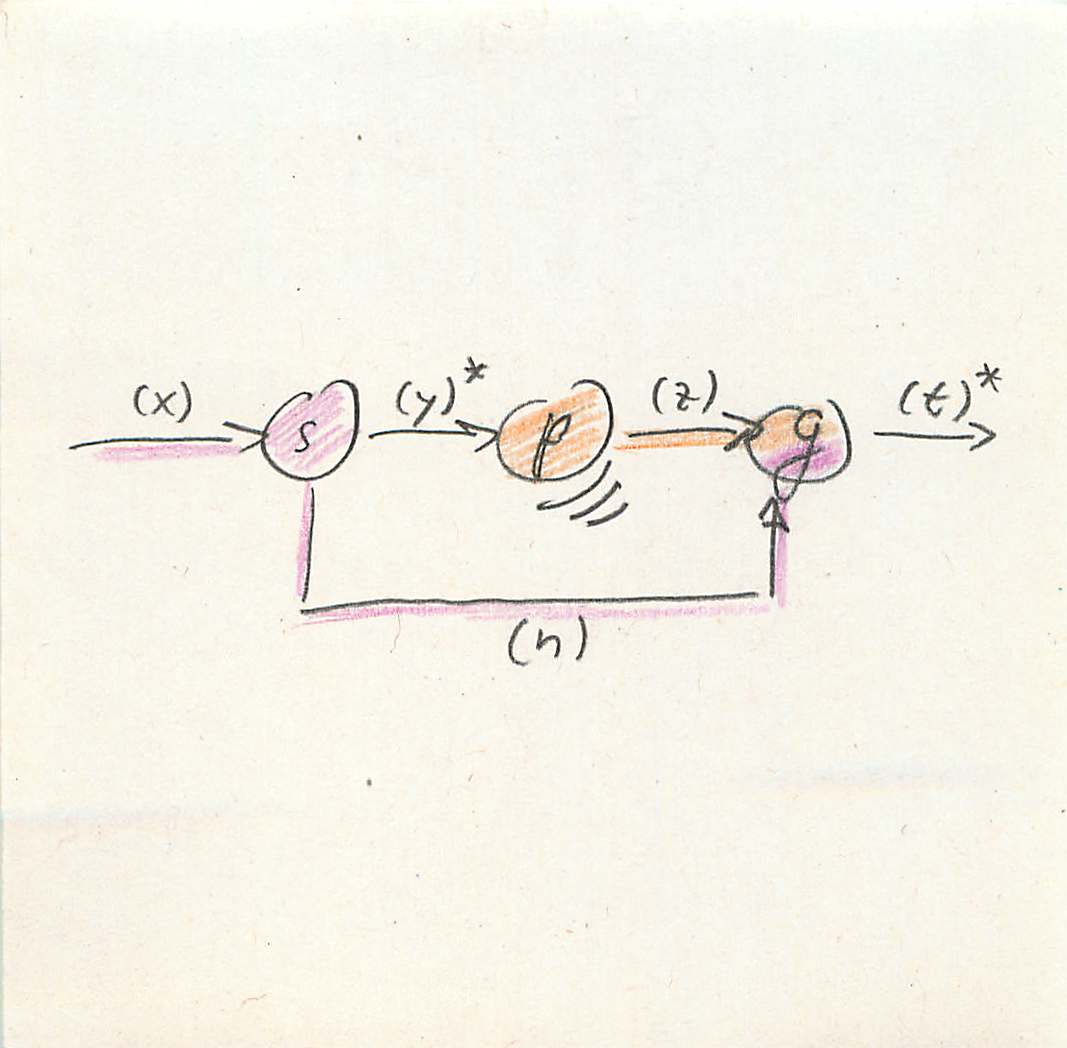 (x) s (y)* p (z) g (t)*
(n)